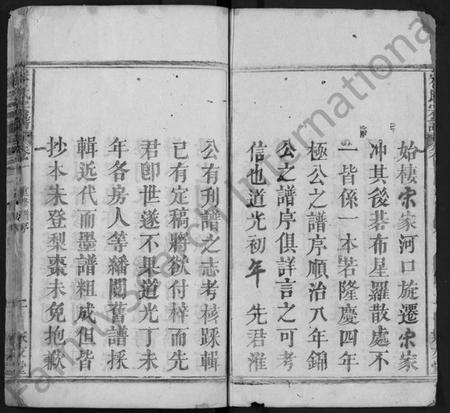 始棲宗家河口旋遷宗家
冲其後碁布星羅散處不
一皆係一本若隆慶四年
極公之譜序順治八年錦
公之譜序俱詳言之可考
信也道光初年 先君濰
公有刋譜之志考核蹂輯
已有定稿將欲付梓而先
君卽世遂不果道光丁未
年各房人等繙閱舊譜採
輯近代而墨譜粗成但皆
抄本未登梨棗未免抱歉
FamilySearch International